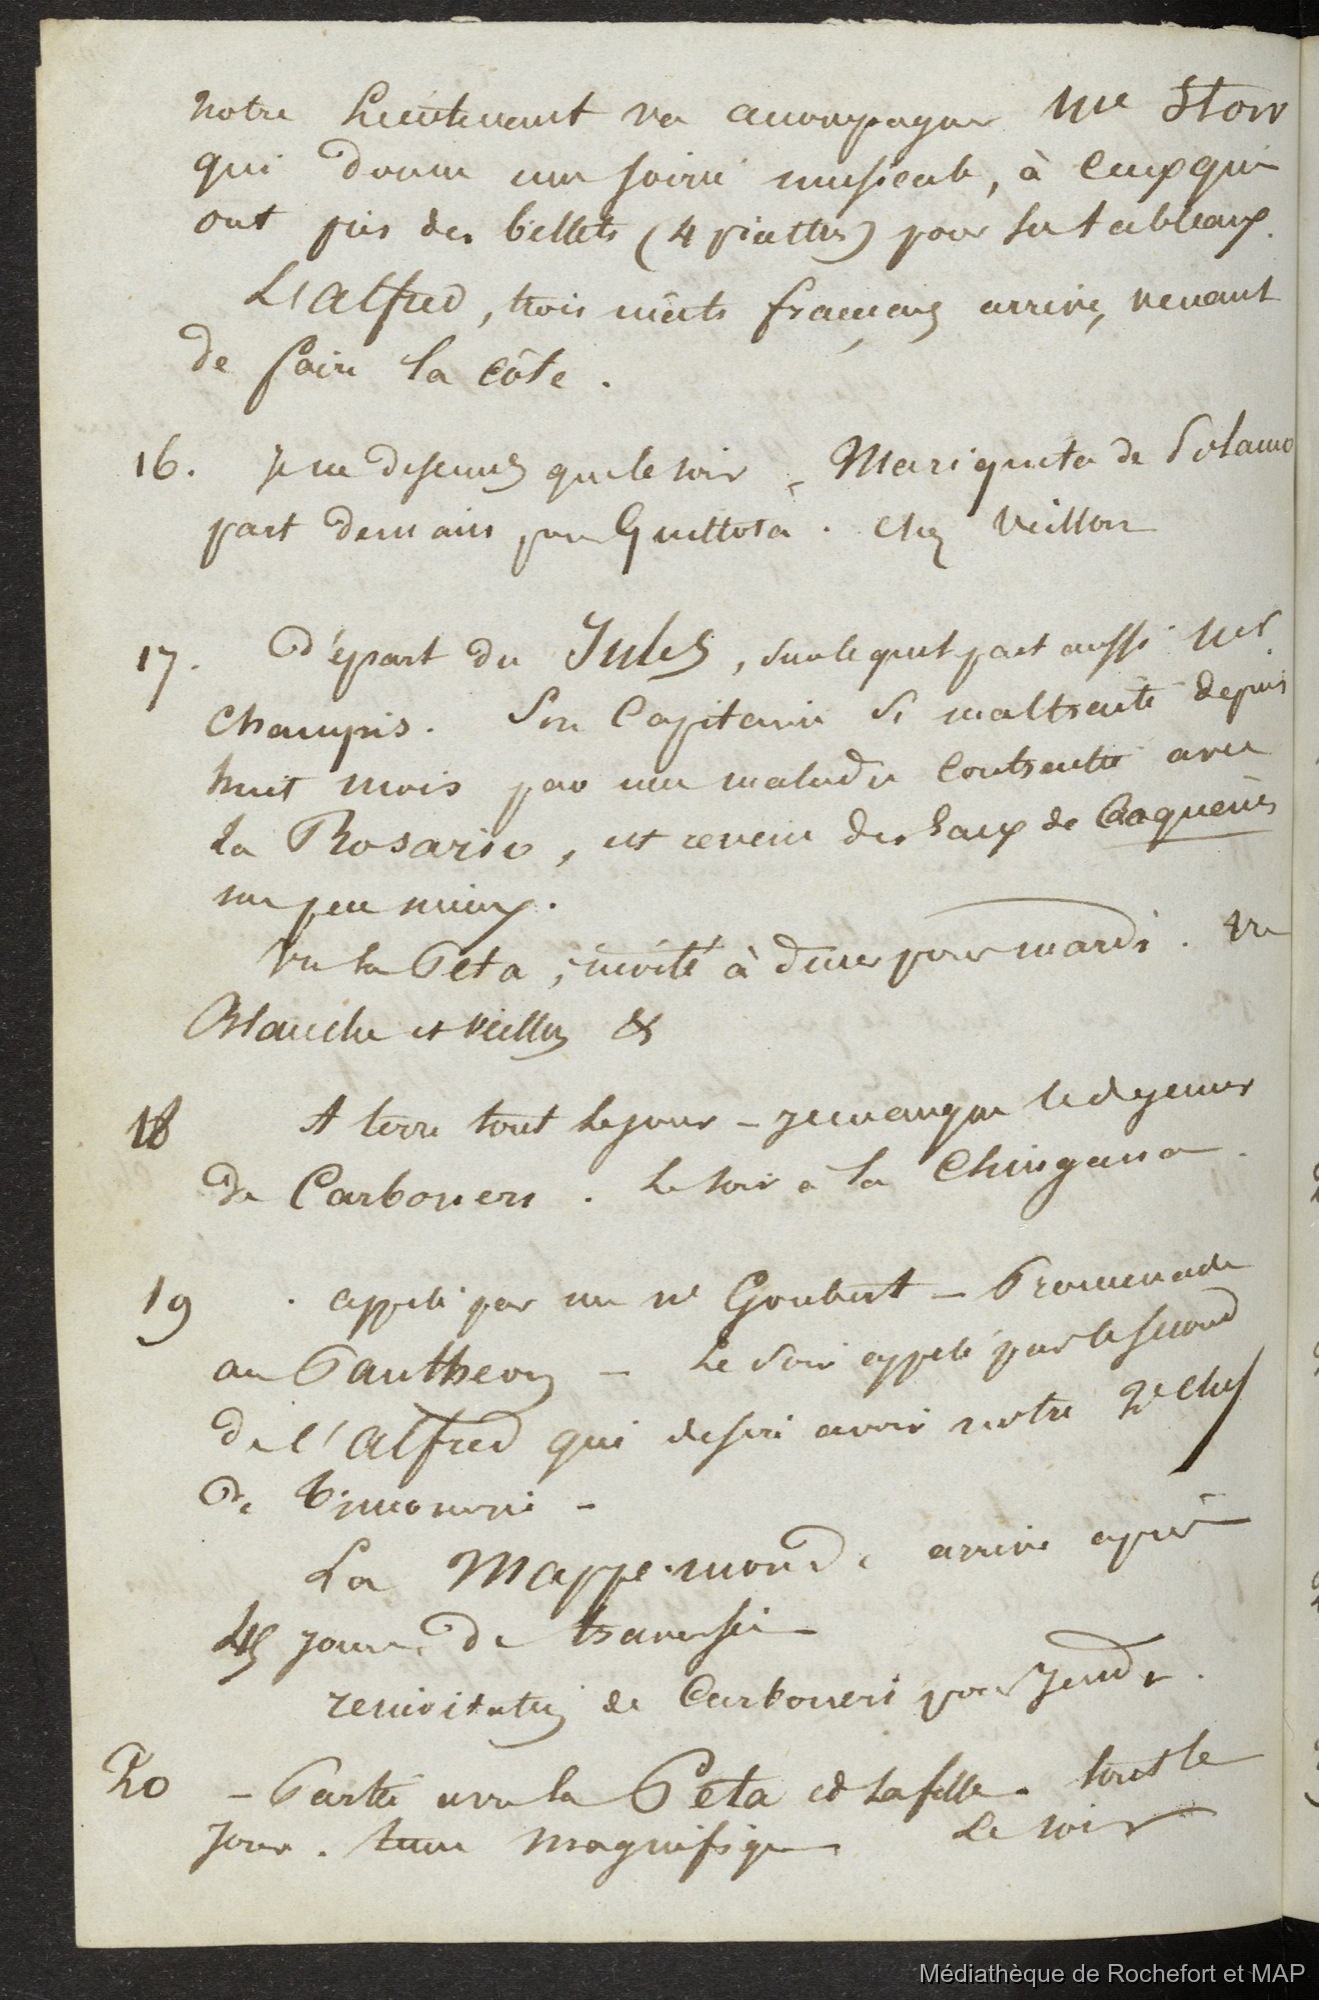 notre Lieutenant va accompagner Me Storr
qui donne une soirée musicale, à ceux qui
ont pris des billets (4 piastres) pour ses tableaux.
L'Alfred, trois mâts français arrive, venant
de faire la côte.
16. Je ne descends que le soir - Mariquita de Solano
part demain pour Quillota. Chez Veillon
17. Départ du Jules, sur lequel part aussi Mr
Champis. Son Capitaine si maltraité depuis
huit mois par une maladie contractée avec
la Rosario, est revenu des Eaux de Caquenès
un peu mieux.
Vu la Peta, invité à diner pour mardi. Vu
Blanche et Veillon &
18 A terre tout le jour - je manque le dejeuner
de Carboneri. Le soir à la Chingana.
19. appelé par un Mr Goubert - Promenade
au Pantheon - Le soir appelé par le second
de l'Alfred qui desire avoir notre 2e chef
de timonerie -
La Mappemonde arrive après
45 jours de traversée
reinvitation de Carboneri pour Jeudi.
20 - Partie avec la Peta et sa fille. tout le
jour. Lune magnifique Le soir
Médiathèque de Rochefort et MAP